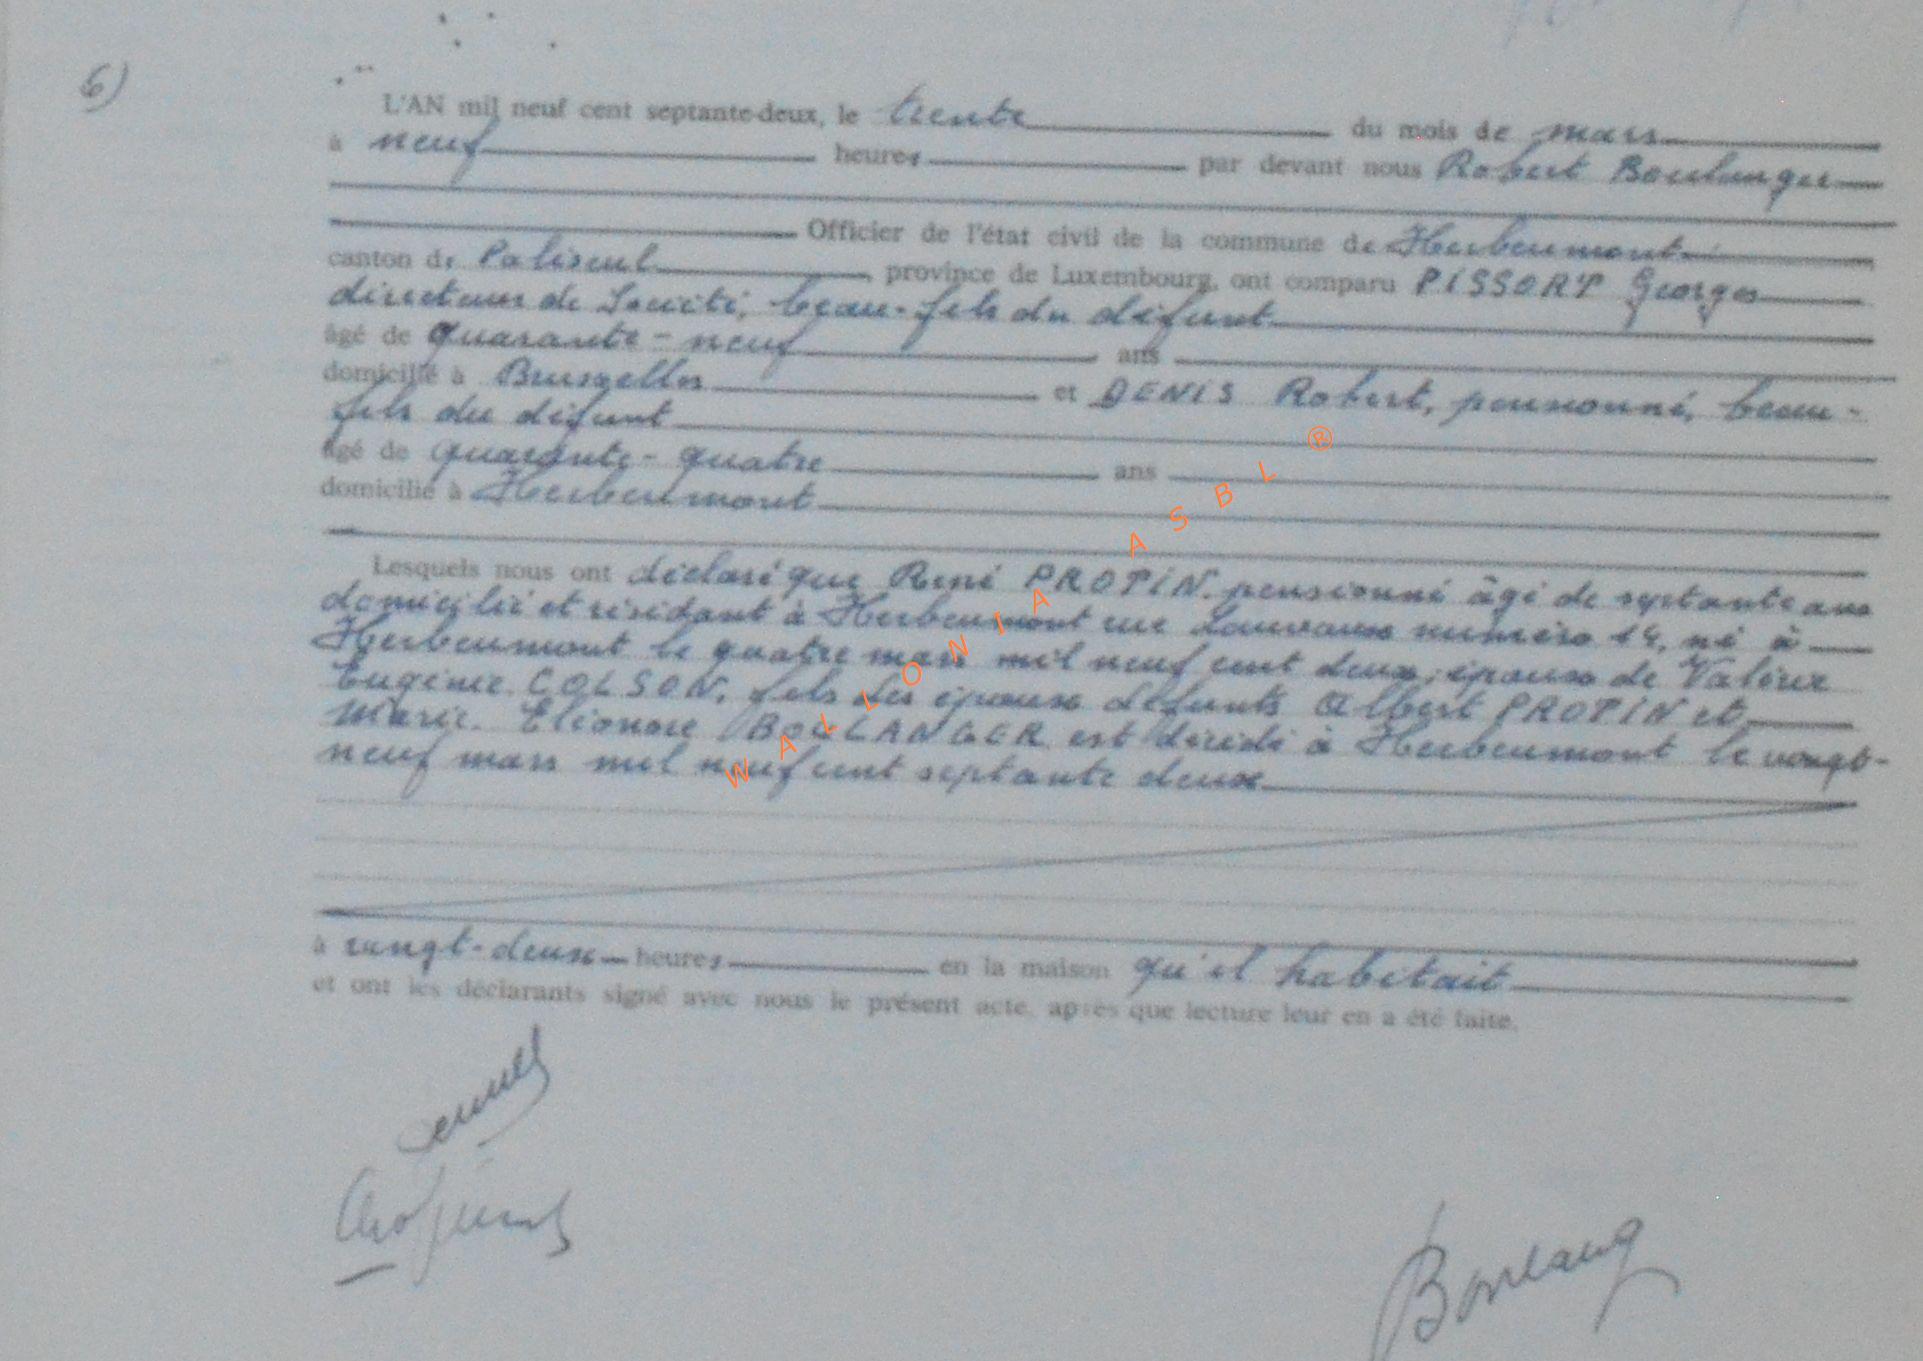 6)
L'AN mil neuf cent septante-deux, le trente du mois de mars
à neuf heures par devant nous Robert Boulanger
Officier de l'état civil de la commune de Herbeumont
canton de Paliseul, province de Luxembourg, ont comparu PISSORT Georges
directeur de Société, beau-fils du défunt
âgé de quarante-neuf ans
domicilié à Bruxelles et DENIS Robert, pensionné, beau-
fils du défunt
âgé de quarante-quatre ans
domicilié à Herbeumont
Lesquels nous ont déclaré que René PROPIN. pensionné âgé de septante ans
domicilié et résidant à Herbeumont rue Lauvaux numéro 14, né à
Herbeumont le quatre mars mil neuf cent deux, époux de Valérie
Eugénie COLSON, fils des époux défunts Albert PROPIN et
Marie. Eléonore BOULANGER est décédé à Herbeumont le vingt-
neuf mars mil neuf cent septante deux
à vingt-deux heures en la maison qu'il habitait
et ont les déclarants signé avec nous le présent acte, après que lecture leur en a été faite.
Boulang
WALLONIA ASBL ®